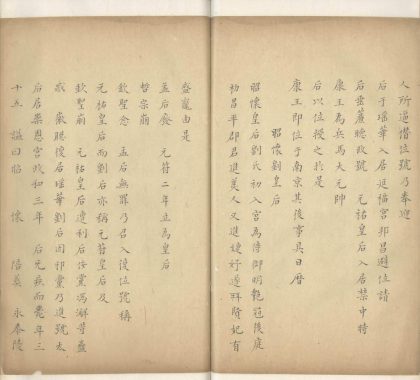 人所逼僭位號乃奉迎
后于瑶華入居延福宮邦昌避位請
后垂簾聴政號　元祐皇后入居禁中特
康王為兵馬大元帥
后以位授之於是
康王即位于南京其後事具日曆
昭懷劉皇后
昭懷皇后劉氏初入宮為侍御明艶冠後庭
初昌平郡君進美人又進婕妤遷　賢妃有
盛寵由是
孟后廢　元符二年立為皇后
哲宗崩
欽聖念　孟后無罪乃召入復位號稱
元祐皇后而劉后亦稱元符皇后及
欽聖崩　元祐皇后遭利后　黨馮澥等
惑　徽朝復居瑶華劉后因邪黨乃進號太
后居崇恩宮政和三年　后无疾而薨年三
十五　謚曰昭　懷　陪葬　永泰陵